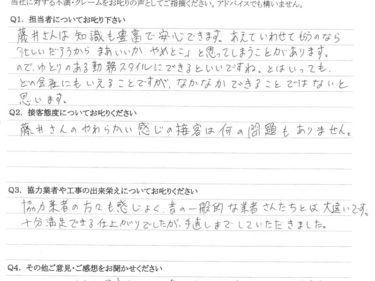 当社に対する不満・クレームをお叱りの声としてご指摘ください。アドバイスでも構いません。
Q1. 担当者についてお叱り下さい
藤井さんは知識も豊富で安心できます。あえていわせてもらうのなら
忙しいだろうから まあいいか、やめとこ」と思ってしまうことがあります。
ので、ゆとりのある勤務スタイルにできるといいですね。とはいっても、
どの会社にもいえることですが、なかなかできることではないと
思います。
Q2. 接客態度についてお叱りください
藤井さんのやわらかい感じの接客は何の問題もありません。
Q3. 協力業者や工事の出来栄えについてお叱りください
協力業者の方々も感じよく、昔の一般的な業者さんたちとは大違いです。
十分満足できる仕上がりでしたが、手直しまでしていただきました。
Q4. その他ご意見・ご感想をお聞かせください